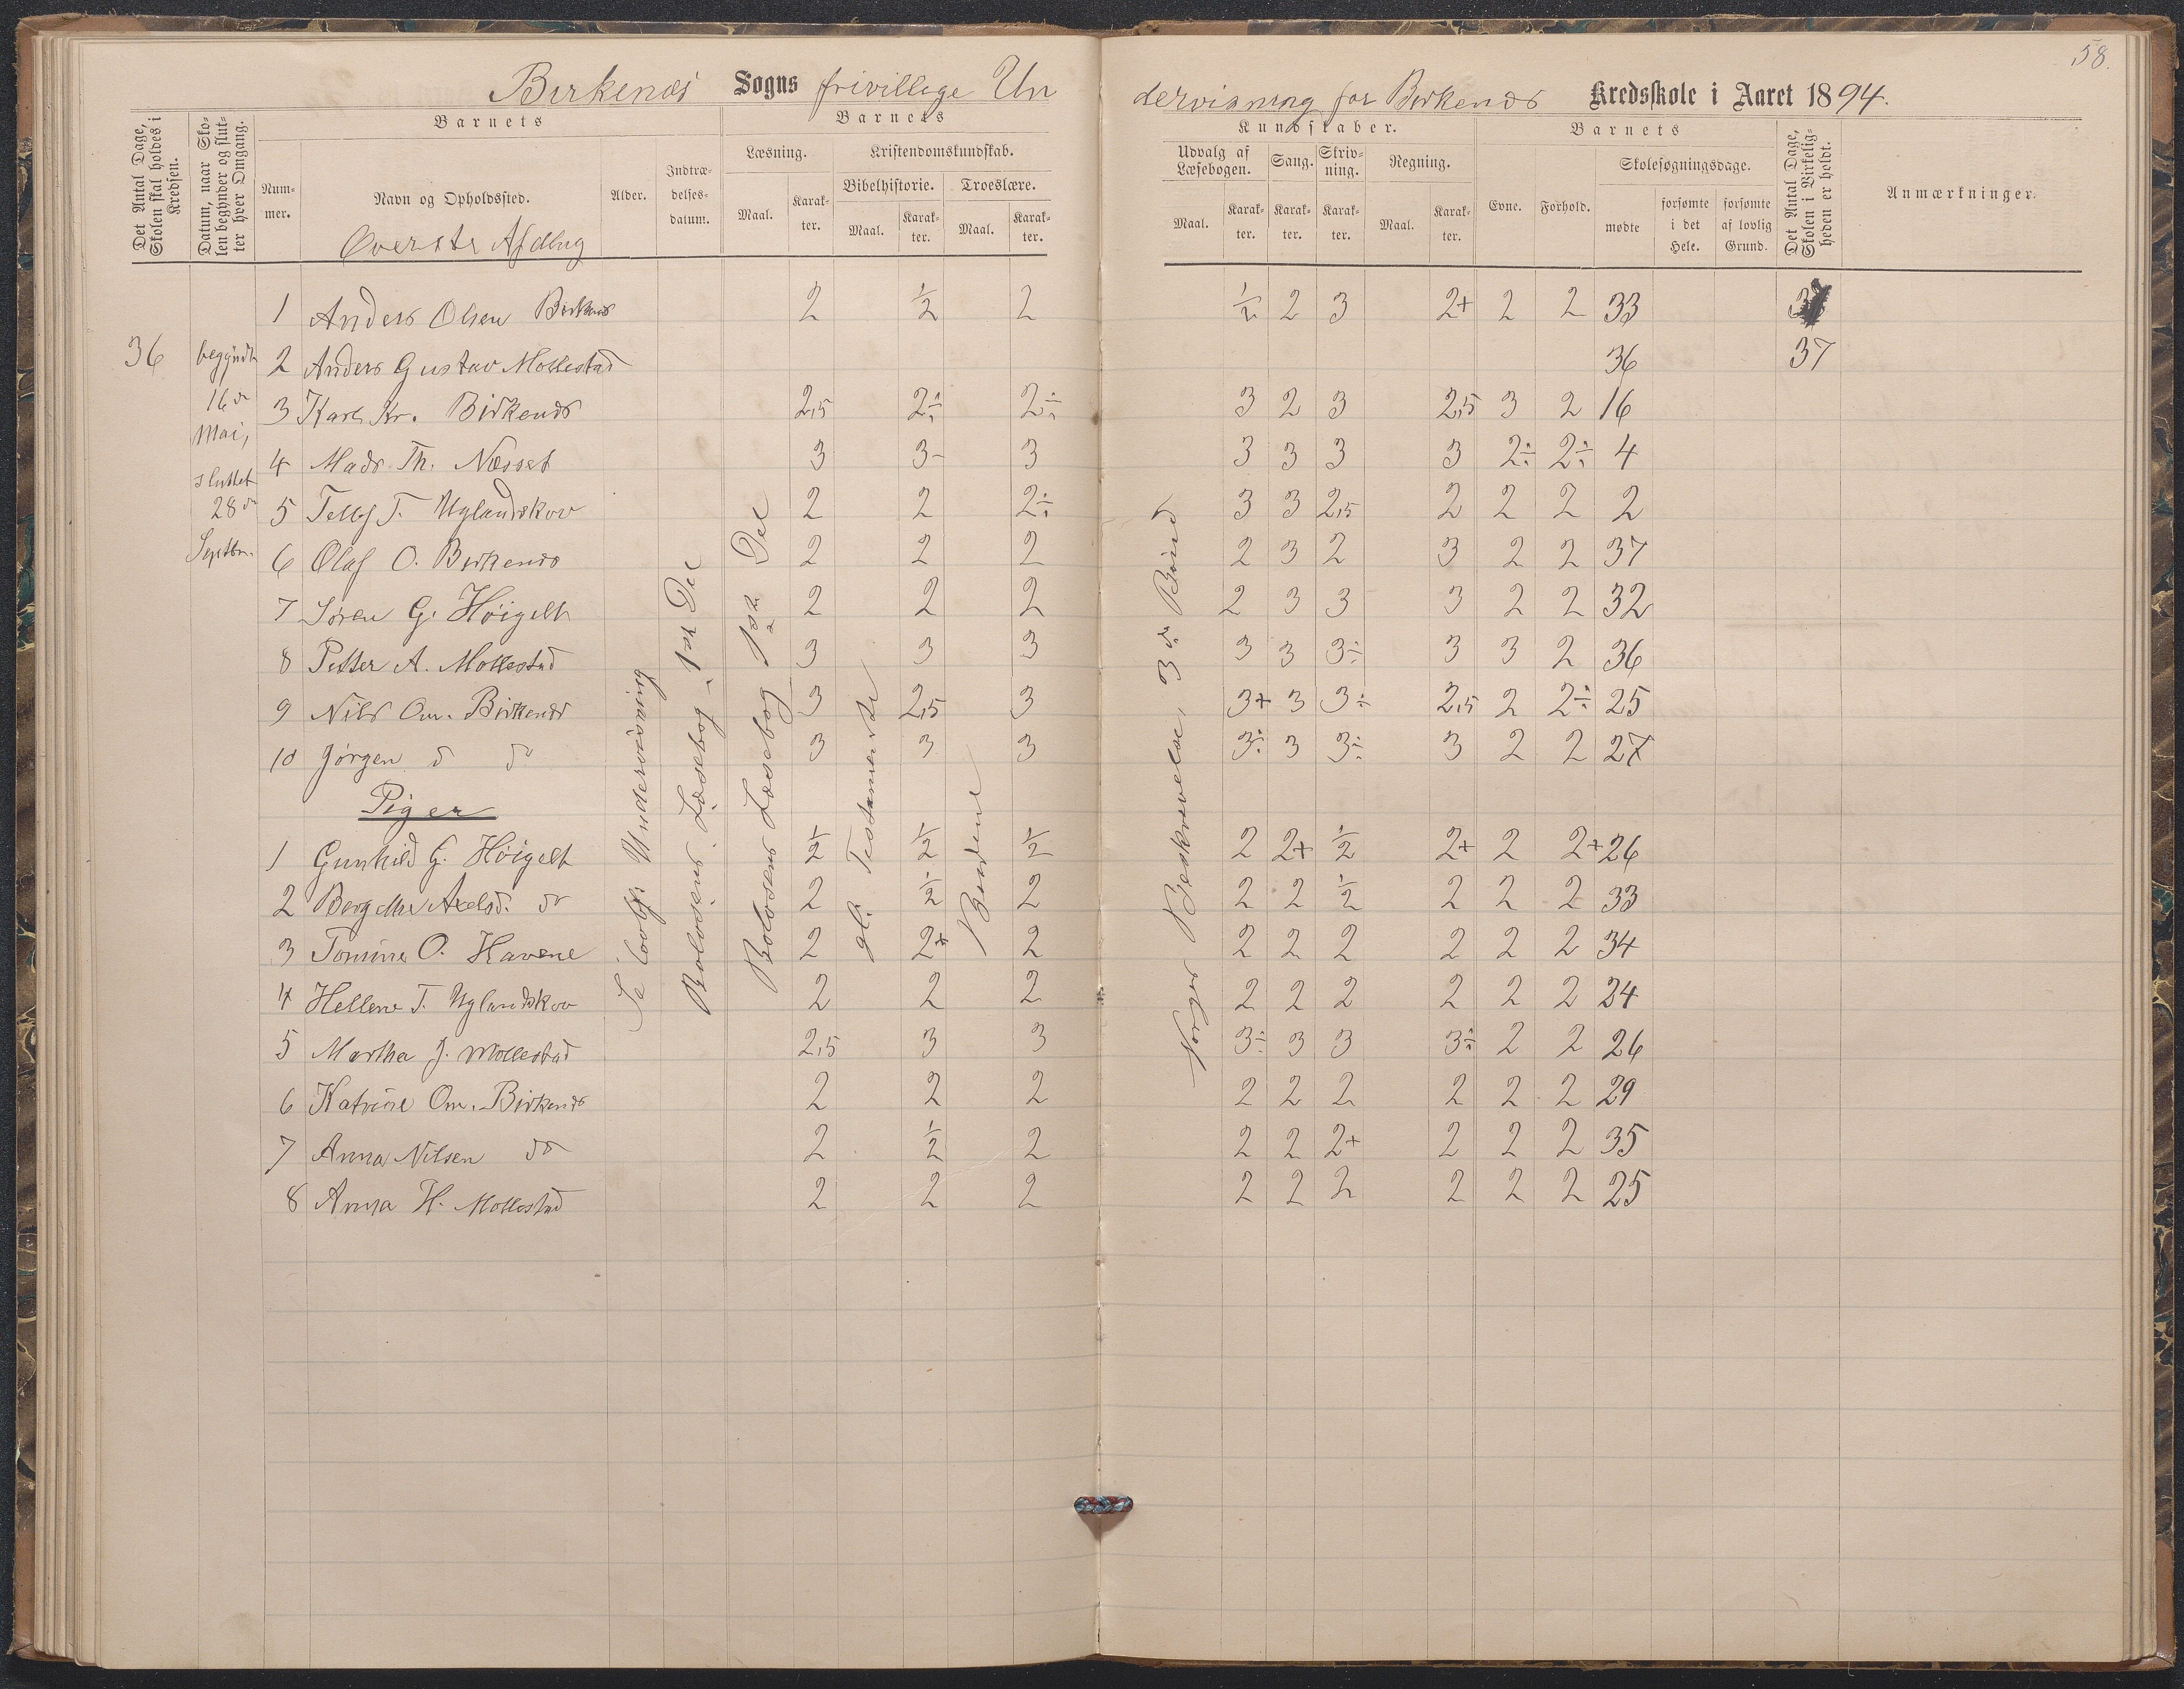 58.
Birkenæs Sogns frivillige Un
dervisning for Birkenæs Kredsskole i Aaret 1894.
Det Antal Dage, Skolen skal holdes i Kredsen.
Datum, naar Skolen begynder og slutter hver Omgang.
Barnets
Nummer.
Navn og Opholdssted.
Øverste Afdlng
Alder.
Indtrædelsesdatum.
Barnets
Læsning.
Maal.
Karakter.
Kristendomskundskab.
Bibelhistorie.
Maal.
Karakter.
Troeslære.
Maal.
Karakter.
Kundskaber.
Udvalg af Læsebogen.
Maal.
Karakter.
Sang.
Karakter.
Skrivning.
Karakter.
Regning.
Maal.
Karakter.
Barnets
Evne.
Forhold.
Skolesøgningsdage.
mødte
forsømte i det Hele.
forsømte af lovlig Grund.
Det Antal Dage, Skolen i Virkeligheden er holdt.
Anmærkninger.
36
begyndt
16de
Mai,
sluttet
28de
Septbr.
1 Anders Olsen Birkenæs 2 1/2 2 1/2 2 3 2+ 2 2 33
2 Anders Gustav Mollestad 36 37
3 Karl Kr. Birkenæs 2,5 2÷ 2÷ 3 2 3 2,5 3 2 16
4 Mads Th. Næsset 3 3- 3 3 3 3 3 2÷ 2÷ 4
5 Tellf T. Uglandskov 2 2 2÷ 3 3 2,5 2 2 2 2
6 Olaf O. Birkenæs 2 2 2 2 3 2 3 2 2 37
7 Søren G. Høigilt 2 2 2 2 3 3 3 2 2 32
8 Petter A. Mollestad 3 3 3 3 3 3÷ 3 3 2 36
9 Nils Om. Birkenæs 3 2,5 3 3+ 3 3÷ 2,5 2 2÷ 25
10 Jørgen do do 3 3 3 3÷ 3 3÷ 3 2 2 27
Piger
1 Gunhild G. Høigilt 1/2 1/2 1/2 2 2+ 1/2 2+ 2 2+ 26
2 Berg Axelsd. do 2 1/2 2 2 2 1/2 2 2 2 33
3 Tomine O. Havene 2 2+ 2 2 2 2 2 2 2 34
4 Hellene T. Uglandskov 2 2 2 2 2 2 2 2 2 24
5 Martha J. Mollestad 2,5 3 3 3÷ 3 3 3÷ 2 2 26
6 Katrine Om. Birkenæs 2 2 2 2 2 2 2 2 2 29
7 Anna Nilsen do 2 1/2 2 2 2 2+ 2 2 2 35
8 Anna H. Mollestad 2 2 2 2 2 2 2 2 2 25
Undervisning
Rolvsens Læsebog, 1ste Del
Rolvsens Læsebog 1ste Del
gl. Testamente
Bønnen
Norges Beskrivelse, 3die Bind